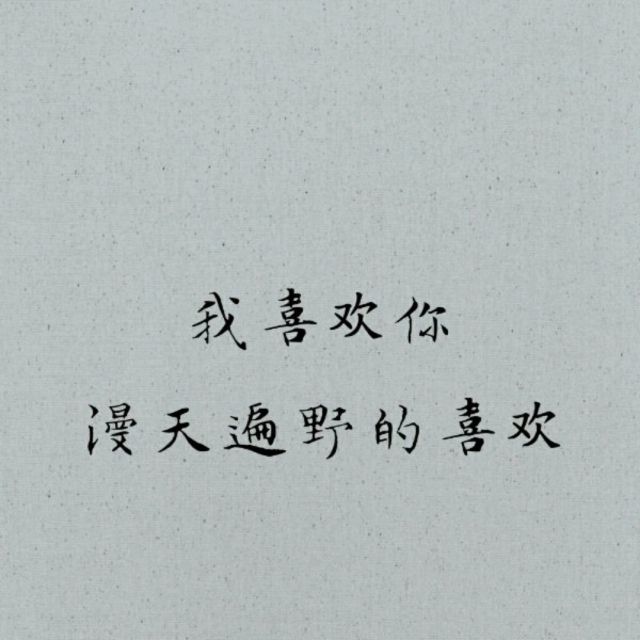 我喜欢你
漫天遍野的喜欢